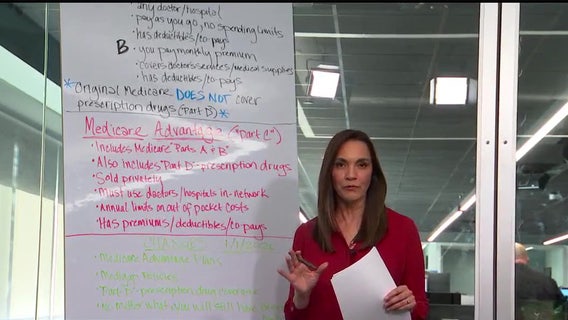 any doctor/hospital
• pay as you go, no spending limits
• has deductibles/co-pays
B • you pay monthly premium
• covers doctors services/medical supplies
• has deductibles/co-pays
*Original Medicare DOES NOT cover
prescription drugs ("part D")*
Medicare Advantage ("part C")
• Includes Medicare "Parts A + B"
• Also includes "Part D"-prescription drugs
• Sold privately
• Must use doctors/hospitals in-network
• Annual limits on out of pocket costs
• Has premiums/deductibles/co-pays
CHANGES
• Medicare Advantage Plans
• Medigap Policies
• "Part D"-prescription drug coverage
• No matter what you will still have